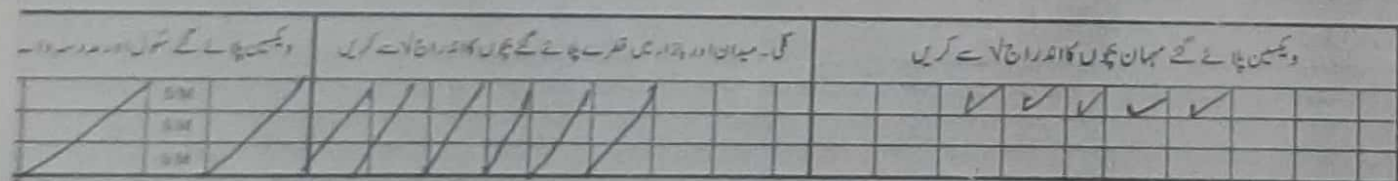 ویکسین پلائے گئے مہمان بچوں کا اندراج √ سے کریں
گلی۔ میدان اور بازار میں قطرے پلائے گئے بچوں کا اندراج √ سے کریں
ویکسین پلائے گئے سکول اور مدرسہ
S/M
S/M
S/M